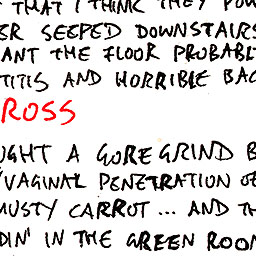 THAT I THINK THEY POW
ER SEEPED DOWNSTAIRS
ANT THE FLOOR PROBABL
TITIS AND HORRIBLE BAC
ROSS
UGHT A GOREGRIND B
"VAGINAL PENETRATION OF
MUSTY CARROT ... AND TH
DIN' IN THE GREEN ROOM